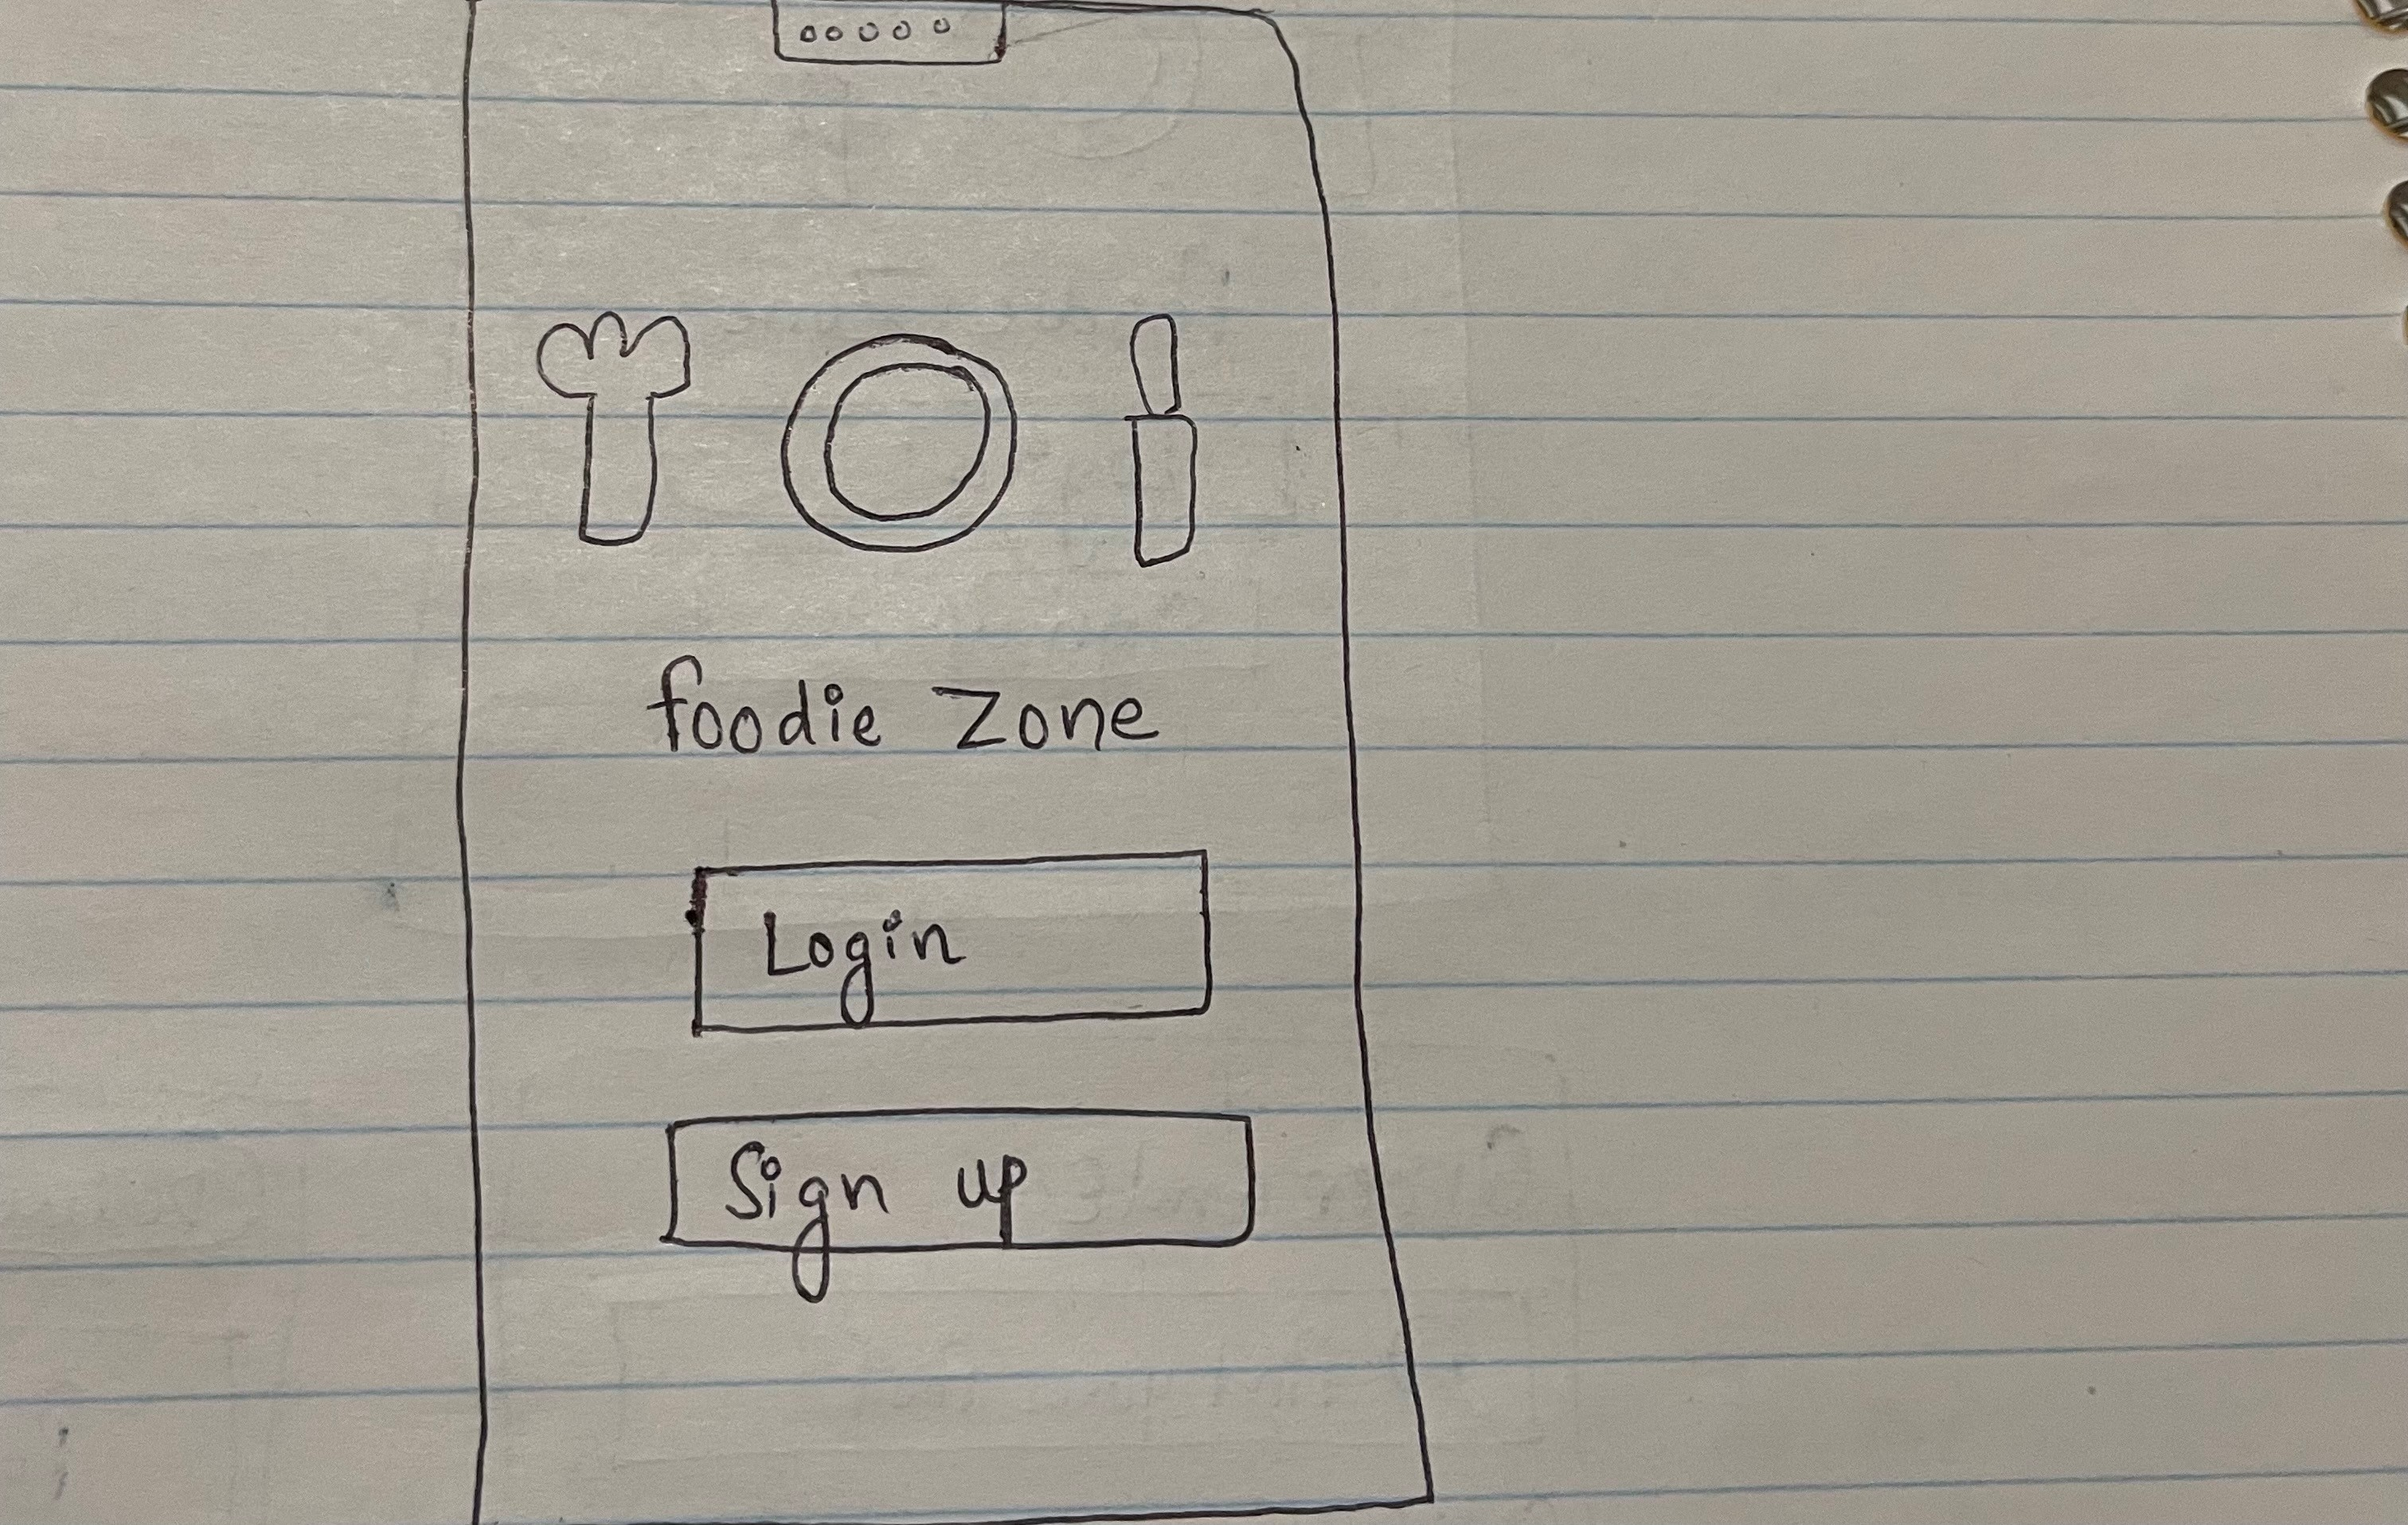 foodie Zone
Login
Sign up